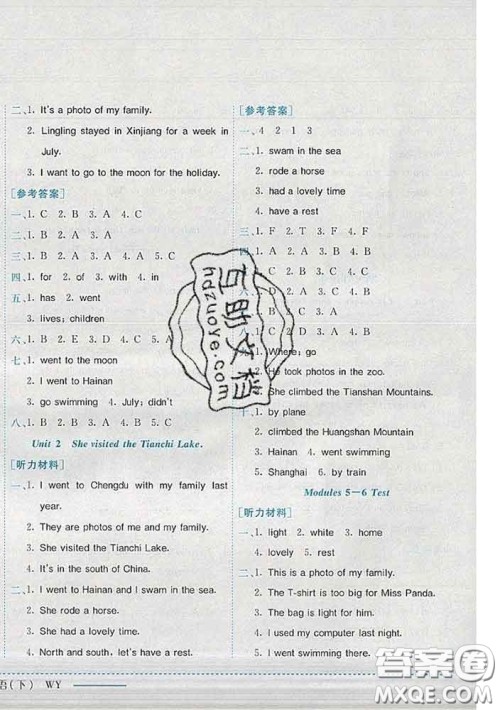 二、1. It's a photo of my family.
2. Lingling stayed in Xinjiang for a week in
July.
3. I want to go to the moon for the holiday.
[参考答案]
一、1. C 2. B 3. A 4. C
二、1. B 2. A 3. A
三、1. C 2. B 3. A 4. A 5. C
四、1. for 2. of 3. with 4. in
五、1. has 2. went
3. lives; children
六、1. B 2. B 3. A 4. B 5. A
七、1. went to the moon
2. I went to Hainan
3. go swimming 4. July; didn't
八、1. B 2. A 3. C 4. B 5. C
Unit 2 She visited the Tianchi Lake.
[听力材料]
一、1. I went to Chengdu with my family last
year.
2. They are photos of me and my family.
3. She visited the Tianchi Lake.
4. It's in the south of China.
二、1. I went to Hainan and I swam in the sea.
2. She rode a horse.
3. She had a lovely time.
4. North and south, let's have a rest.
语(下) WY
[参考答案]
一、4 2 1 3
二、1. swam in the sea
2. rode a horse
3. had a lovely time
4. have a rest
三、1. F 2. T 3. F 4. F
四、1. A 2. B 3. A 4. B
1. A 2. B 3. B 4. A 5. A
1. C 2. A 3. C 4. B 5. C
1. B 2. A 3. B 4. B
1. D 2. C 3. A 4. B
1. Where; go
2. He took photos in the zoo.
3. She climbed the Tianshan Mountains.
十、1. by plane
2. climbed the Huangshan Mountain
3. Hainan 4. went swimming
5. Shanghai 6. by train
Modules 5—6 Test
[听力材料]
一、1. light 2. white 3. home
4. lovely 5. rest
二、1. This is a photo of my family.
2. The T-shirt is too big for Miss Panda.
3. The bag is light for him.
4. I used my computer last night.
5. I went swimming there.
互助文档
hdzuoye.com
答案圈
MXQE.COM